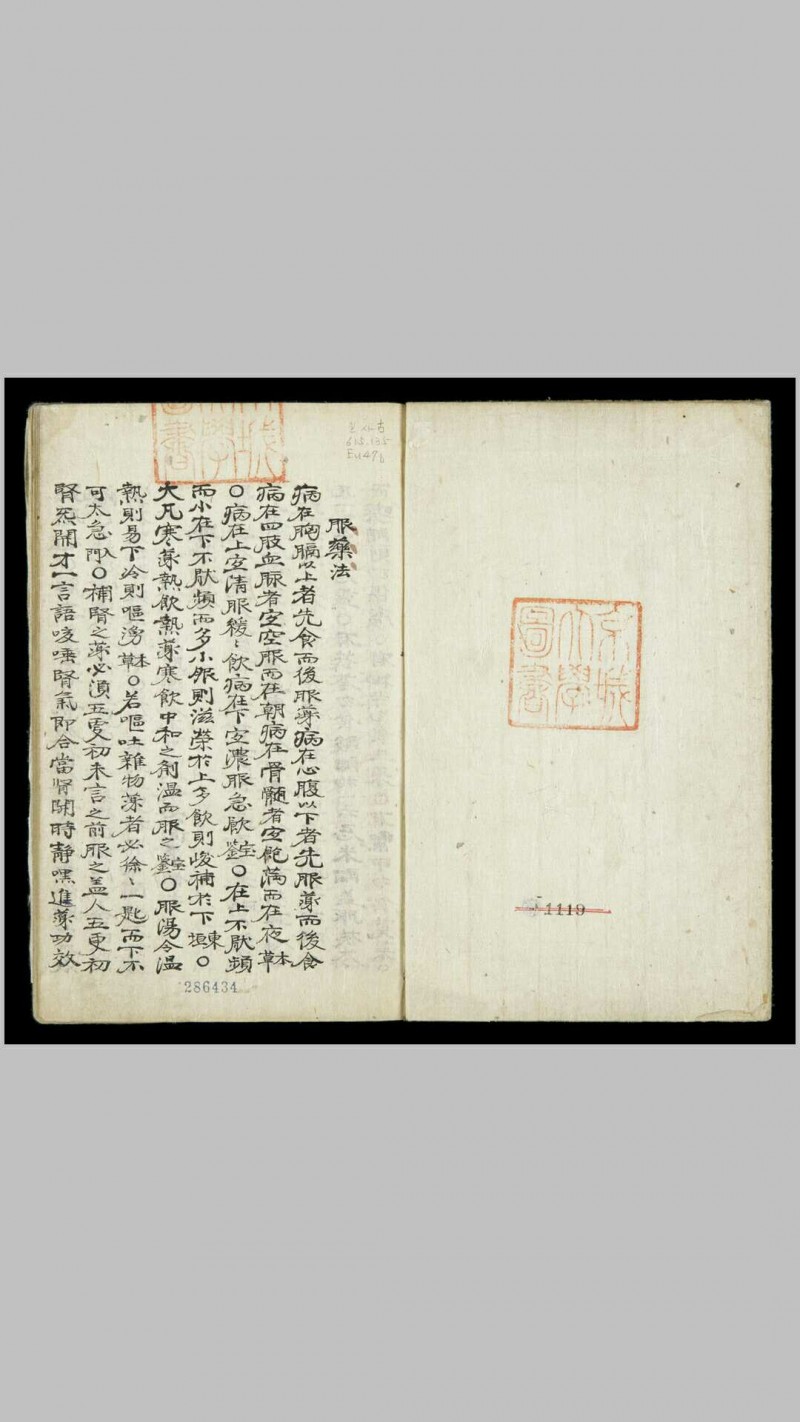 京城
大學
圖書
1119
服藥法
病在胸膈以上者先食而後服藥病在心腹以下者先服藥而後食
病在四肢血脉者宜空服而在朝病在骨髓者宜飽滿而在夜本草
○病在上宜清服緩〻飮病在下宜濃服急飮宝鑑○在上不厭頻
而小在下不厭頻而多小服則滋榮於上多飮則峻補於下東垣○
大凡寒藥熱飮熱藥寒飮中和之劑温而服之宝鑑○服湯令温
熱則易下冷則嘔湧本草○若嘔吐難物藥者必徐〻一匙而下不
可太急入門○補腎之藥必須五更初未言之前服之盖人五更初
腎炁開才一言語咳唾腎氣即合當腎開時靜嘿進藥功效
286434